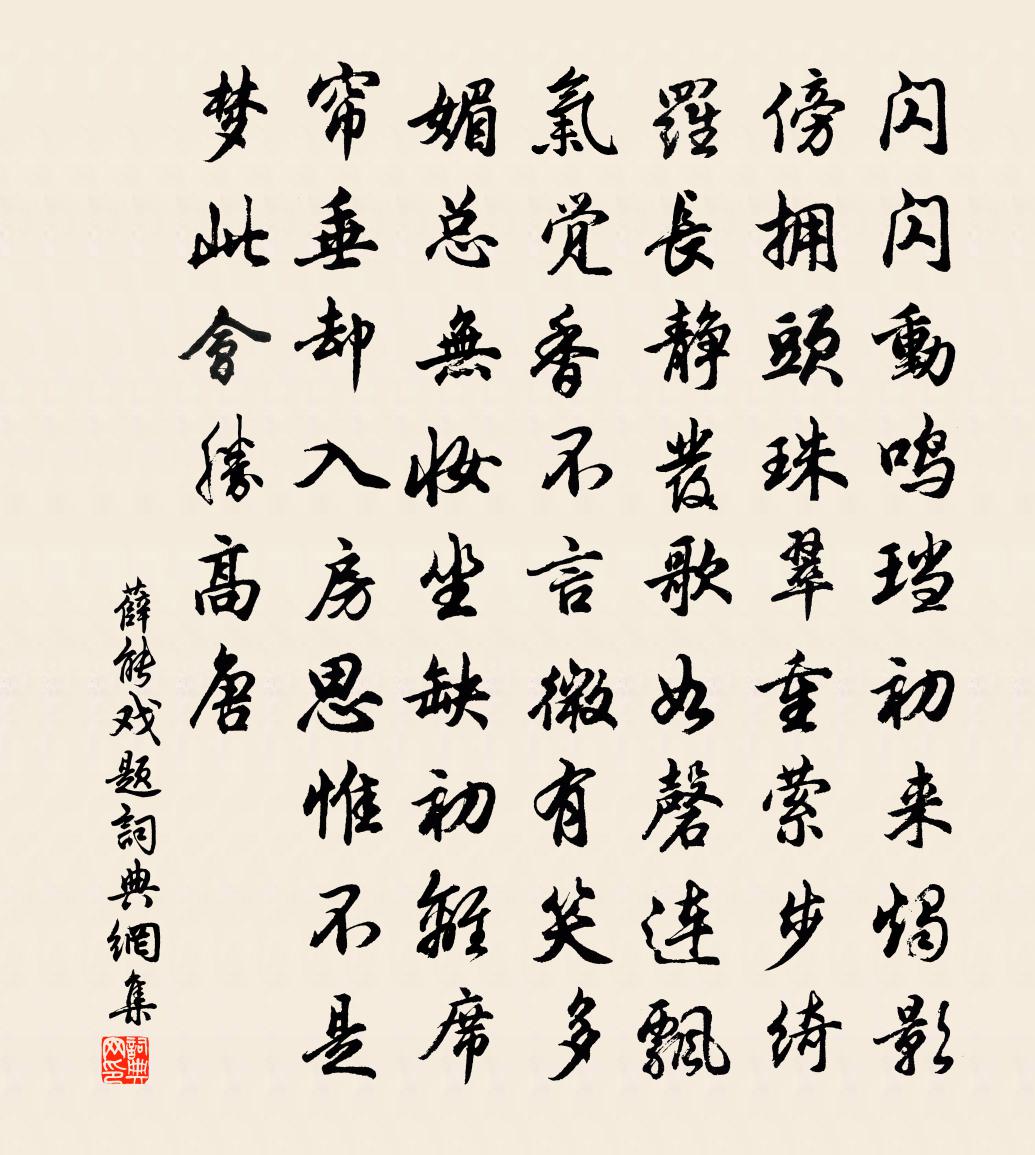 闪闪動鸣珰初来燭影
傍拥頭珠翠重萦步绮
羅長静發歌如磬连飄
氣觉香不言微有笑多
媚总無妆坐缺初離席
帘垂却入房思惟不是
梦此會勝高唐
薛能戏题詞典網集
詞典网印